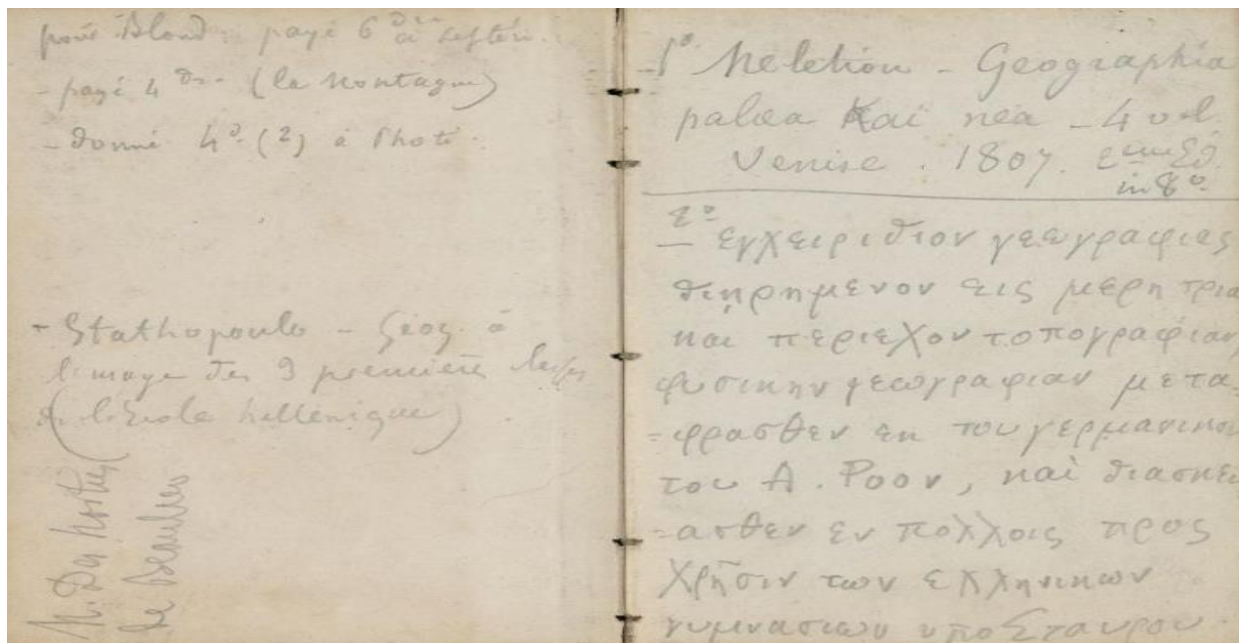 pour Blond : payé 6 dr. à Lefteri.
- payé 4 dr. (la montagne)
- donné 4 d. (2) à Photi.
- Stathopoulo - Géog. à
l'usage des 3 premières
(de l'École hellénique)
1º Meletiou - Geographia
palæa Kai nea - 4 vol.
Venise. 1807. 2eme éd.
in 8º
2º
εγχειριδιον γεωγραφιας
διηρημενον εις μερη τρια
και περιεχον τοπογραφιαν,
φυσικην γεωγραφιαν μετα-
-φρασθεν εκ του γερμανικου
του Α. Ροον, καὶ διασκευ
-ασθεν εν πολλοις προς
χρῆσιν των ελληνικων
γυμνασιων υπο Σταυρου